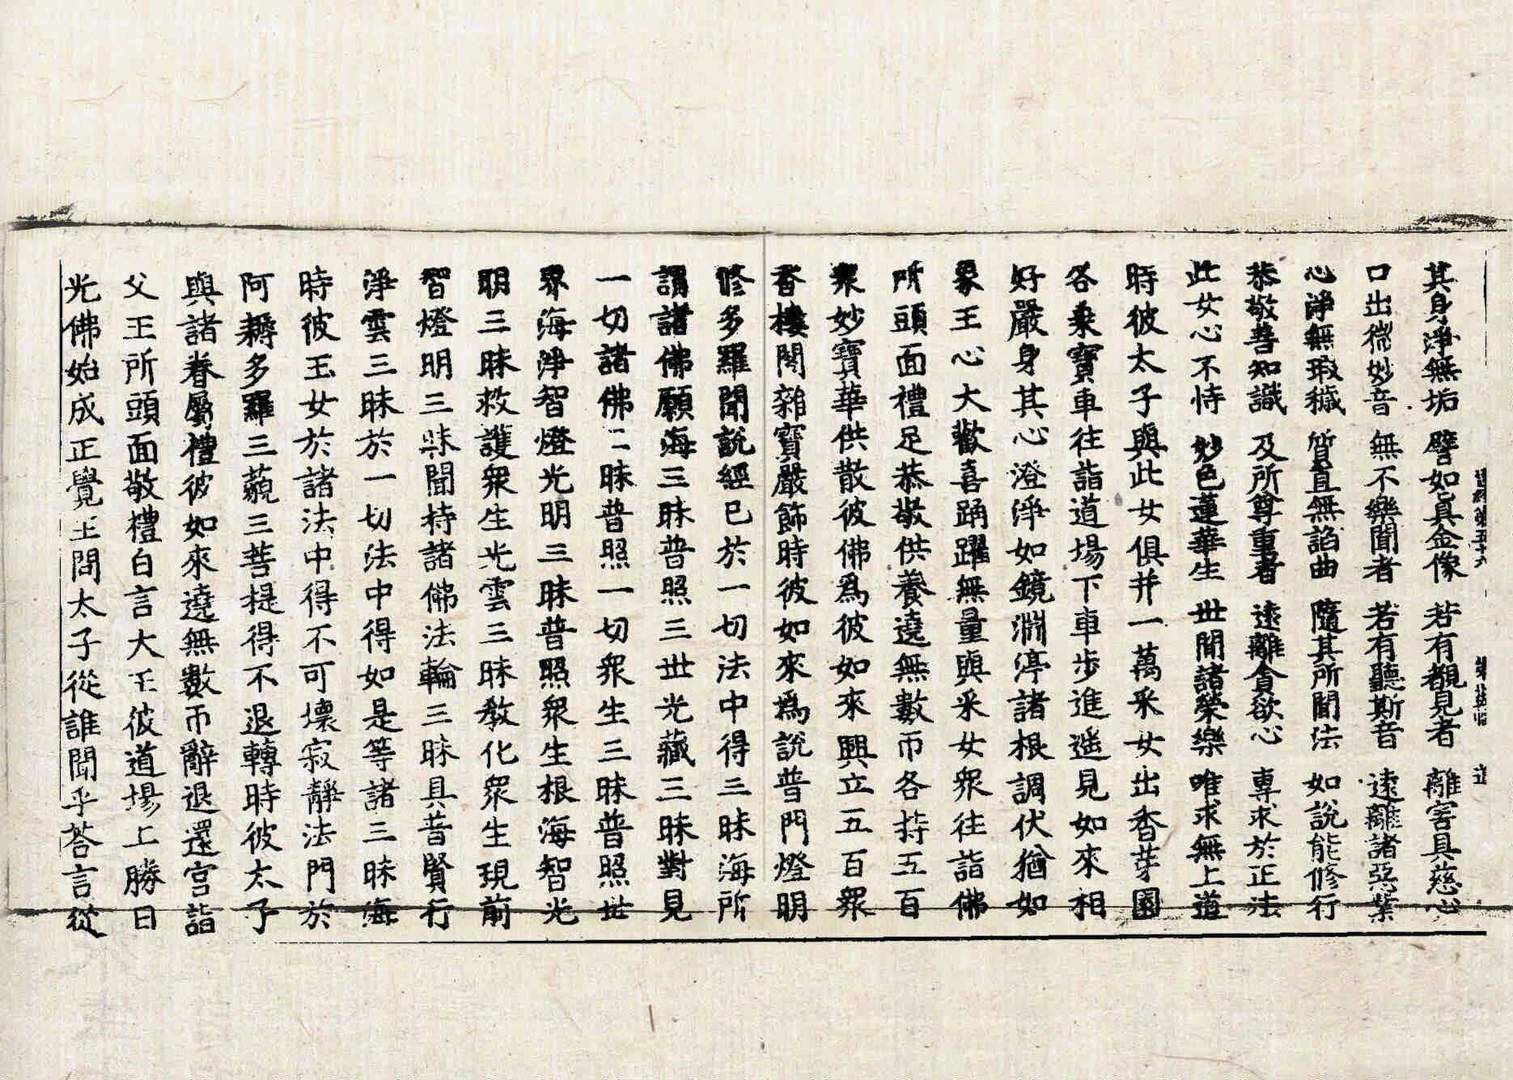 其身淨無垢　譬如真金像　若有覩見者　離害具慈心
口出微妙音　無不樂聞者　若有聽斯音　遠離諸惡業
心淨無瑕穢　質直無諂曲　隨其所聞法　如說能修行
恭敬善知識　及所尊重者　遠離貪欲心　專求於正法
此女心不恃　妙色蓮華生　世間諸榮樂　唯求無上道
時彼太子與此女俱并一萬采女出香芽園
各乗寶車往詣道場下車步進遥見如來相
好嚴身其心澄淨如鏡淵渟諸根調伏猶如
象王心大歡喜踊躍無量與采女衆往詣佛
所頭面禮足恭敬供養遶無數帀各持五百
衆妙寶華供散彼佛爲彼如來興立五百衆
香樓閣雜寶嚴飾時彼如來爲說普門燈明
修多羅聞說經已於一切法中得三昧海所
謂諸佛願海三昧普照三世光藏三昧對見
一切諸佛三昧普照一切衆生三昧普照世
界海淨智燈光明三昧普照衆生根海智光
明三昧救護衆生光雲三昧教化衆生現前
智燈明三昧聞持諸佛法輪三昧具普賢行
淨雲三昧於一切法中得如是等諸三昧海
時彼玉女於諸法中得不可壞寂靜法門於
阿耨多羅三藐三菩提得不退轉時彼太子
與諸眷屬禮彼如來遶無數帀辭退還宮詣
父王所頭面敬禮白言大王彼道場上勝日
光佛始成正覺王問太子從誰聞乎荅言從